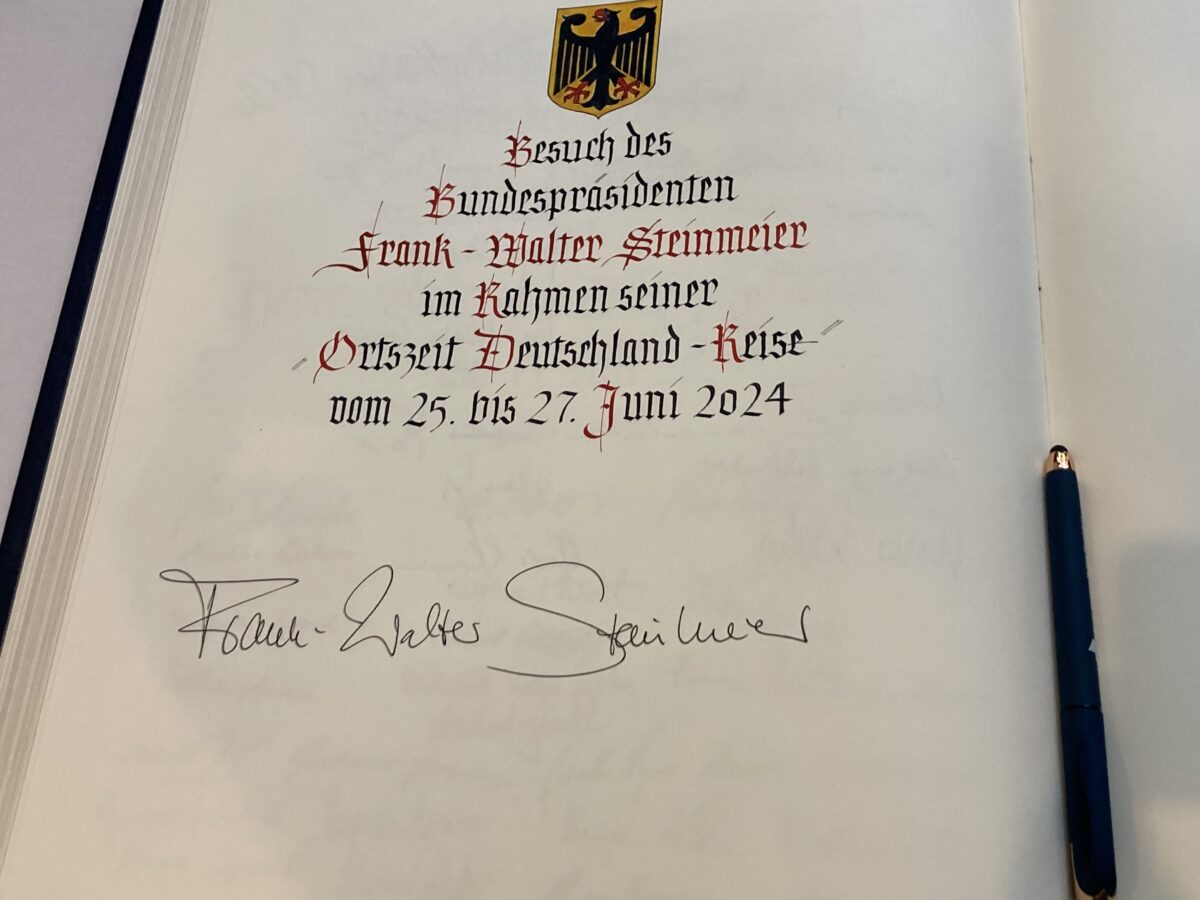 Besuch des
Bundespräsidenten
Frank-Walter Steinmeier
im Rahmen seiner
"Ortszeit Deutschland-Reise"
vom 25. bis 27. Juni 2024
Frank-Walter Steinmeier